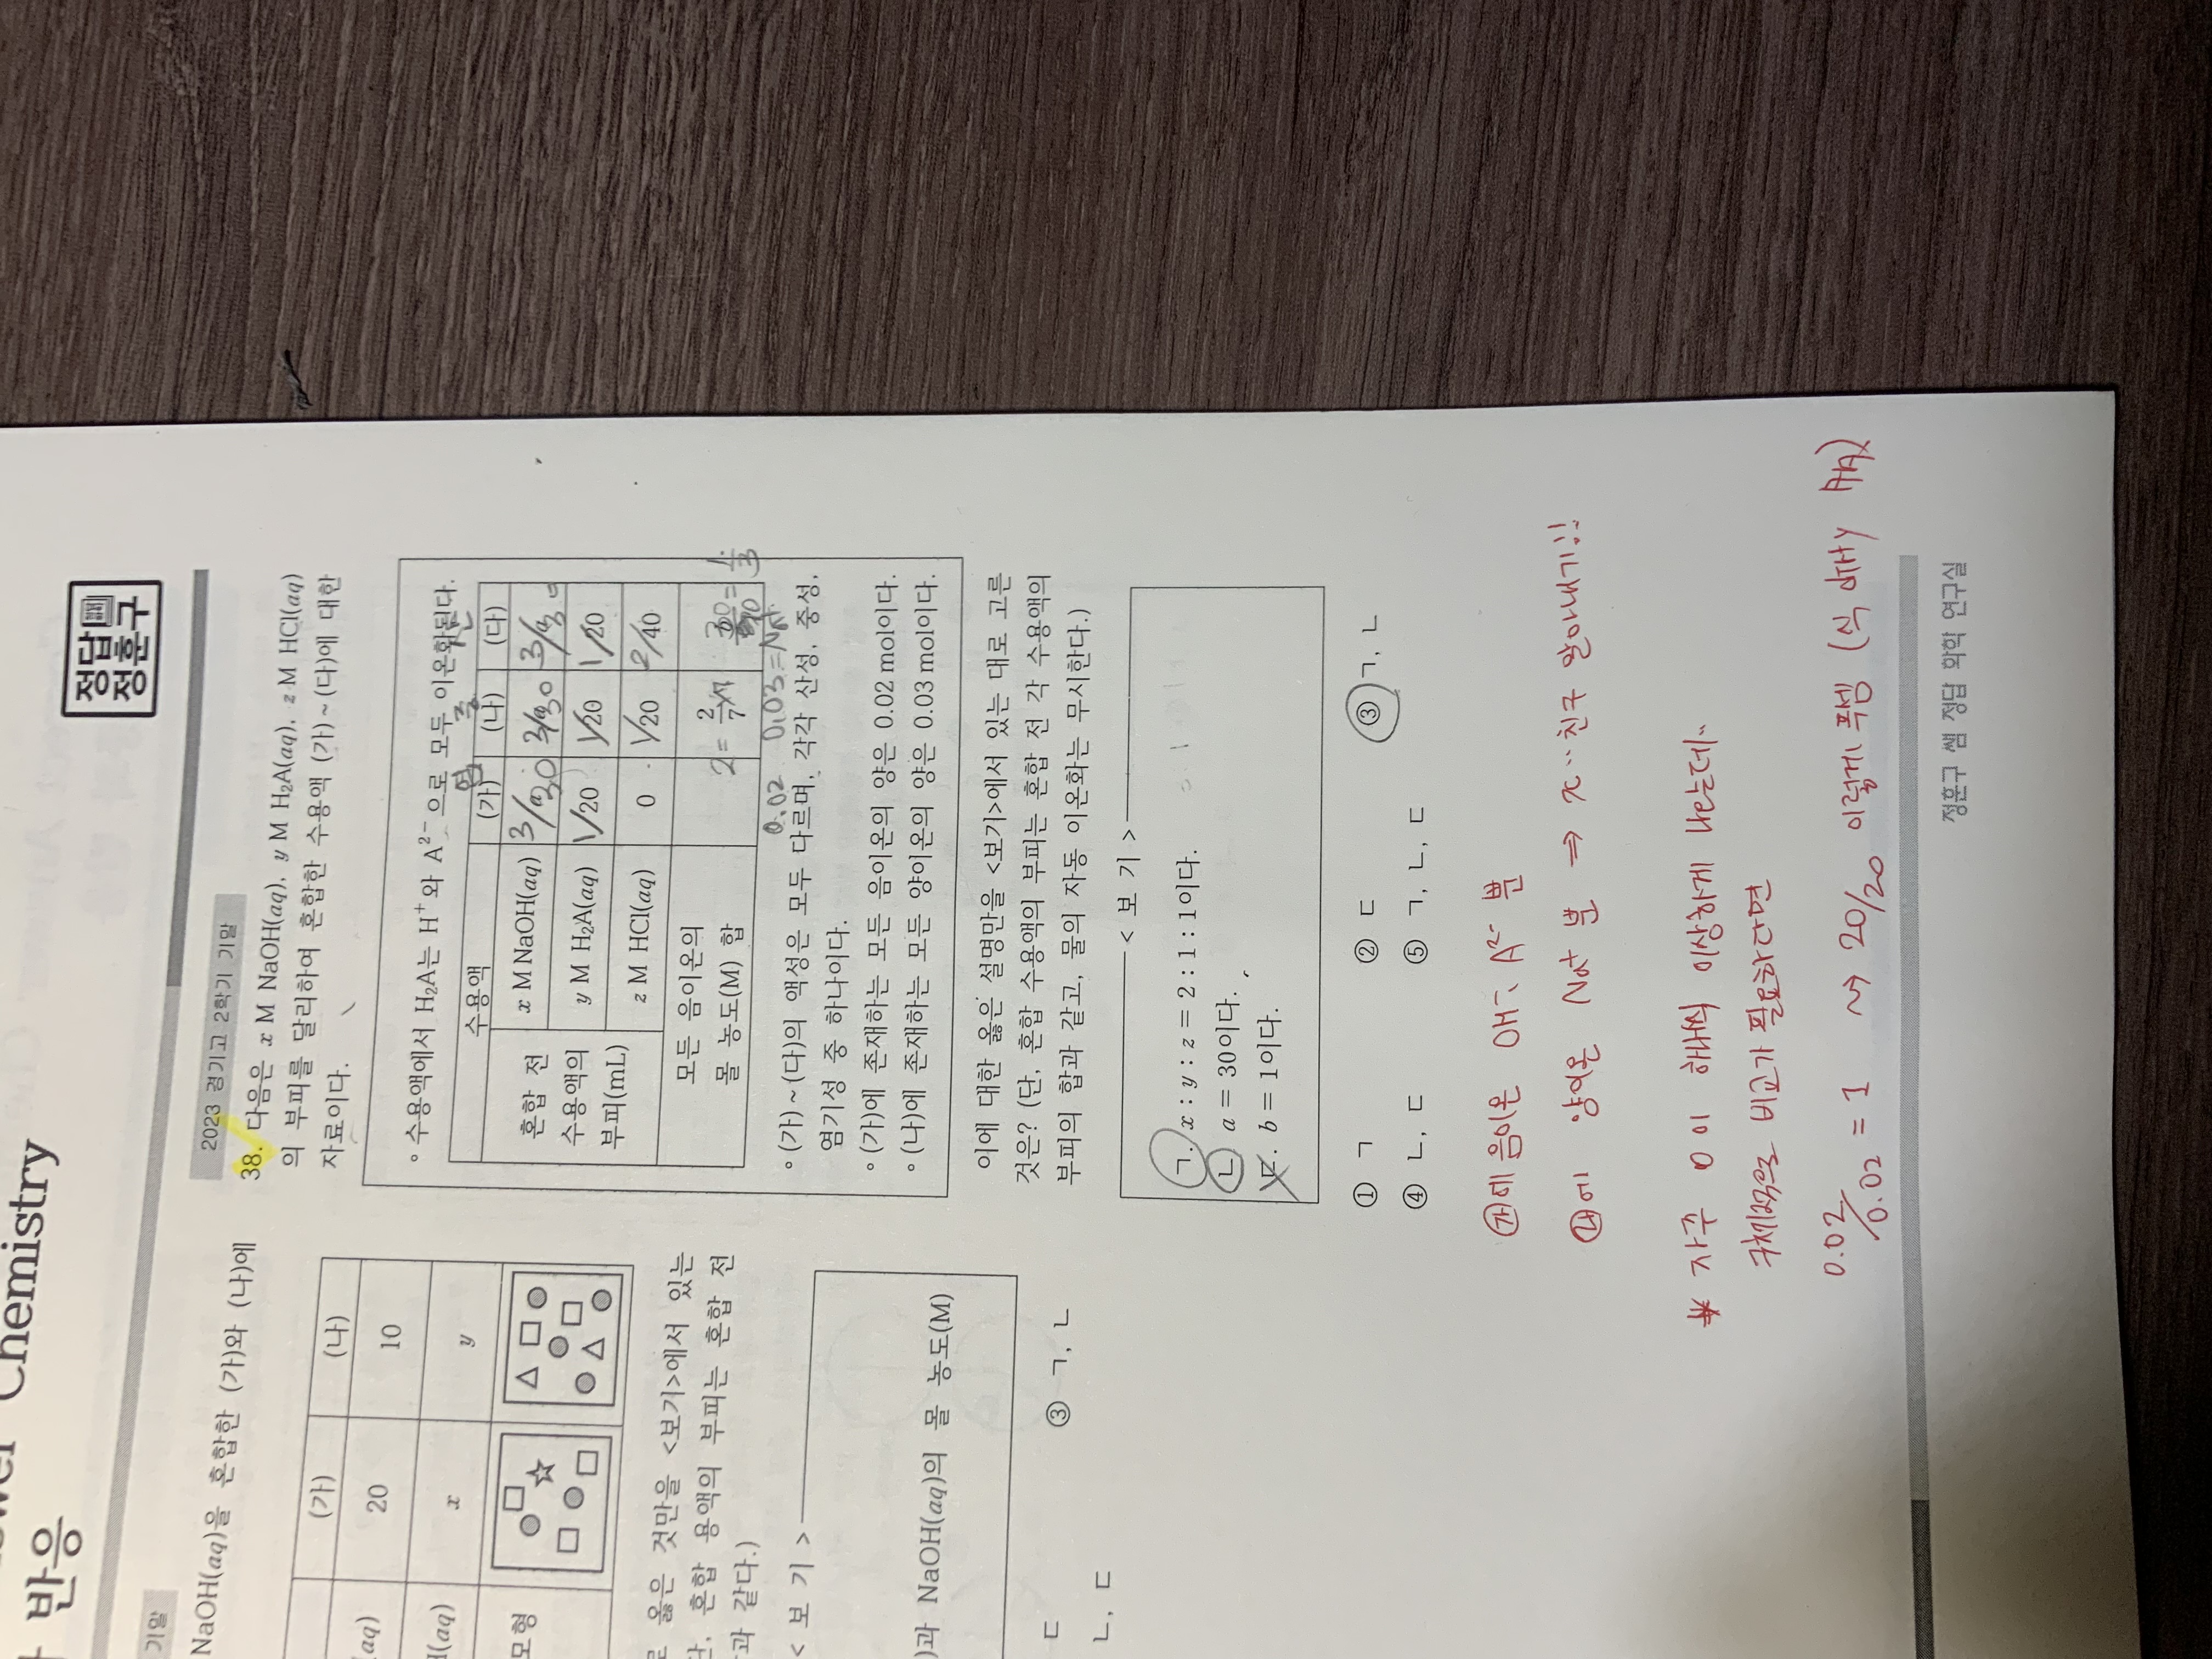 Chemistry
반응
정답
정훈구
기말
NaOH(aq)을 혼합한 (가)와 (나)에
(가) (나)
(aq) 20 10
(aq) x y
모형
옳은 것만을 <보기>에서 있는
혼합 용액의 부피는 혼합 전
과 같다.)
< 보 기 >
)과 NaOH(aq)의 몰 농도(M)
ㄷ ③ ㄱ, ㄴ
ㄴ, ㄷ
2023 경기고 2학기 기말
38. 다음은 x M NaOH(aq), y M H₂A(aq), z M HCl(aq)
의 부피를 달리하여 혼합한 수용액 (가) ~ (다)에 대한
자료이다.
∘ 수용액에서 H₂A는 H⁺와 A²⁻으로 모두 이온화된다.
수용액 (가) (나) (다)
혼합 전
수용액의
부피(mL)
x M NaOH(aq) 3/a30 3/a30 3/a
y M H₂A(aq) 1/20 1/20 1/20
z M HCl(aq) 0 1/20 2/40
모든 음이온의
몰 농도(M) 합
2 = 2/7
0.02 0.03=Na⁺
∘ (가) ~ (다)의 액성은 모두 다르며, 각각 산성, 중성,
염기성 중 하나이다.
∘ (가)에 존재하는 모든 음이온의 양은 0.02 mol이다.
∘ (나)에 존재하는 모든 양이온의 양은 0.03 mol이다.
이에 대한 옳은 설명만을 <보기>에서 있는 대로 고른
것은? (단, 혼합 수용액의 부피는 혼합 전 각 수용액의
부피의 합과 같고, 물의 자동 이온화는 무시한다.)
< 보 기 >
ㄱ. x : y : z = 2 : 1 : 1이다.
ㄴ. a = 30이다.
ㄷ. b = 1이다.
① ㄱ ② ㄷ ③ ㄱ, ㄴ
④ ㄴ, ㄷ ⑤ ㄱ, ㄴ, ㄷ
(가)에 음이온 OH⁻, A²⁻ 뿐
(나)에 양이온 Na⁺ 뿐 ⇒ x.. 친구 알아내기!!
* 자꾸 0이 하나씩 이상하게 나눈데..
구체적으로 비교가 필요하다면
0.02/0.02 = 1 ⇝ 20/20 이렇게 폭셈
정훈구 쌤 정답 화학 연구실